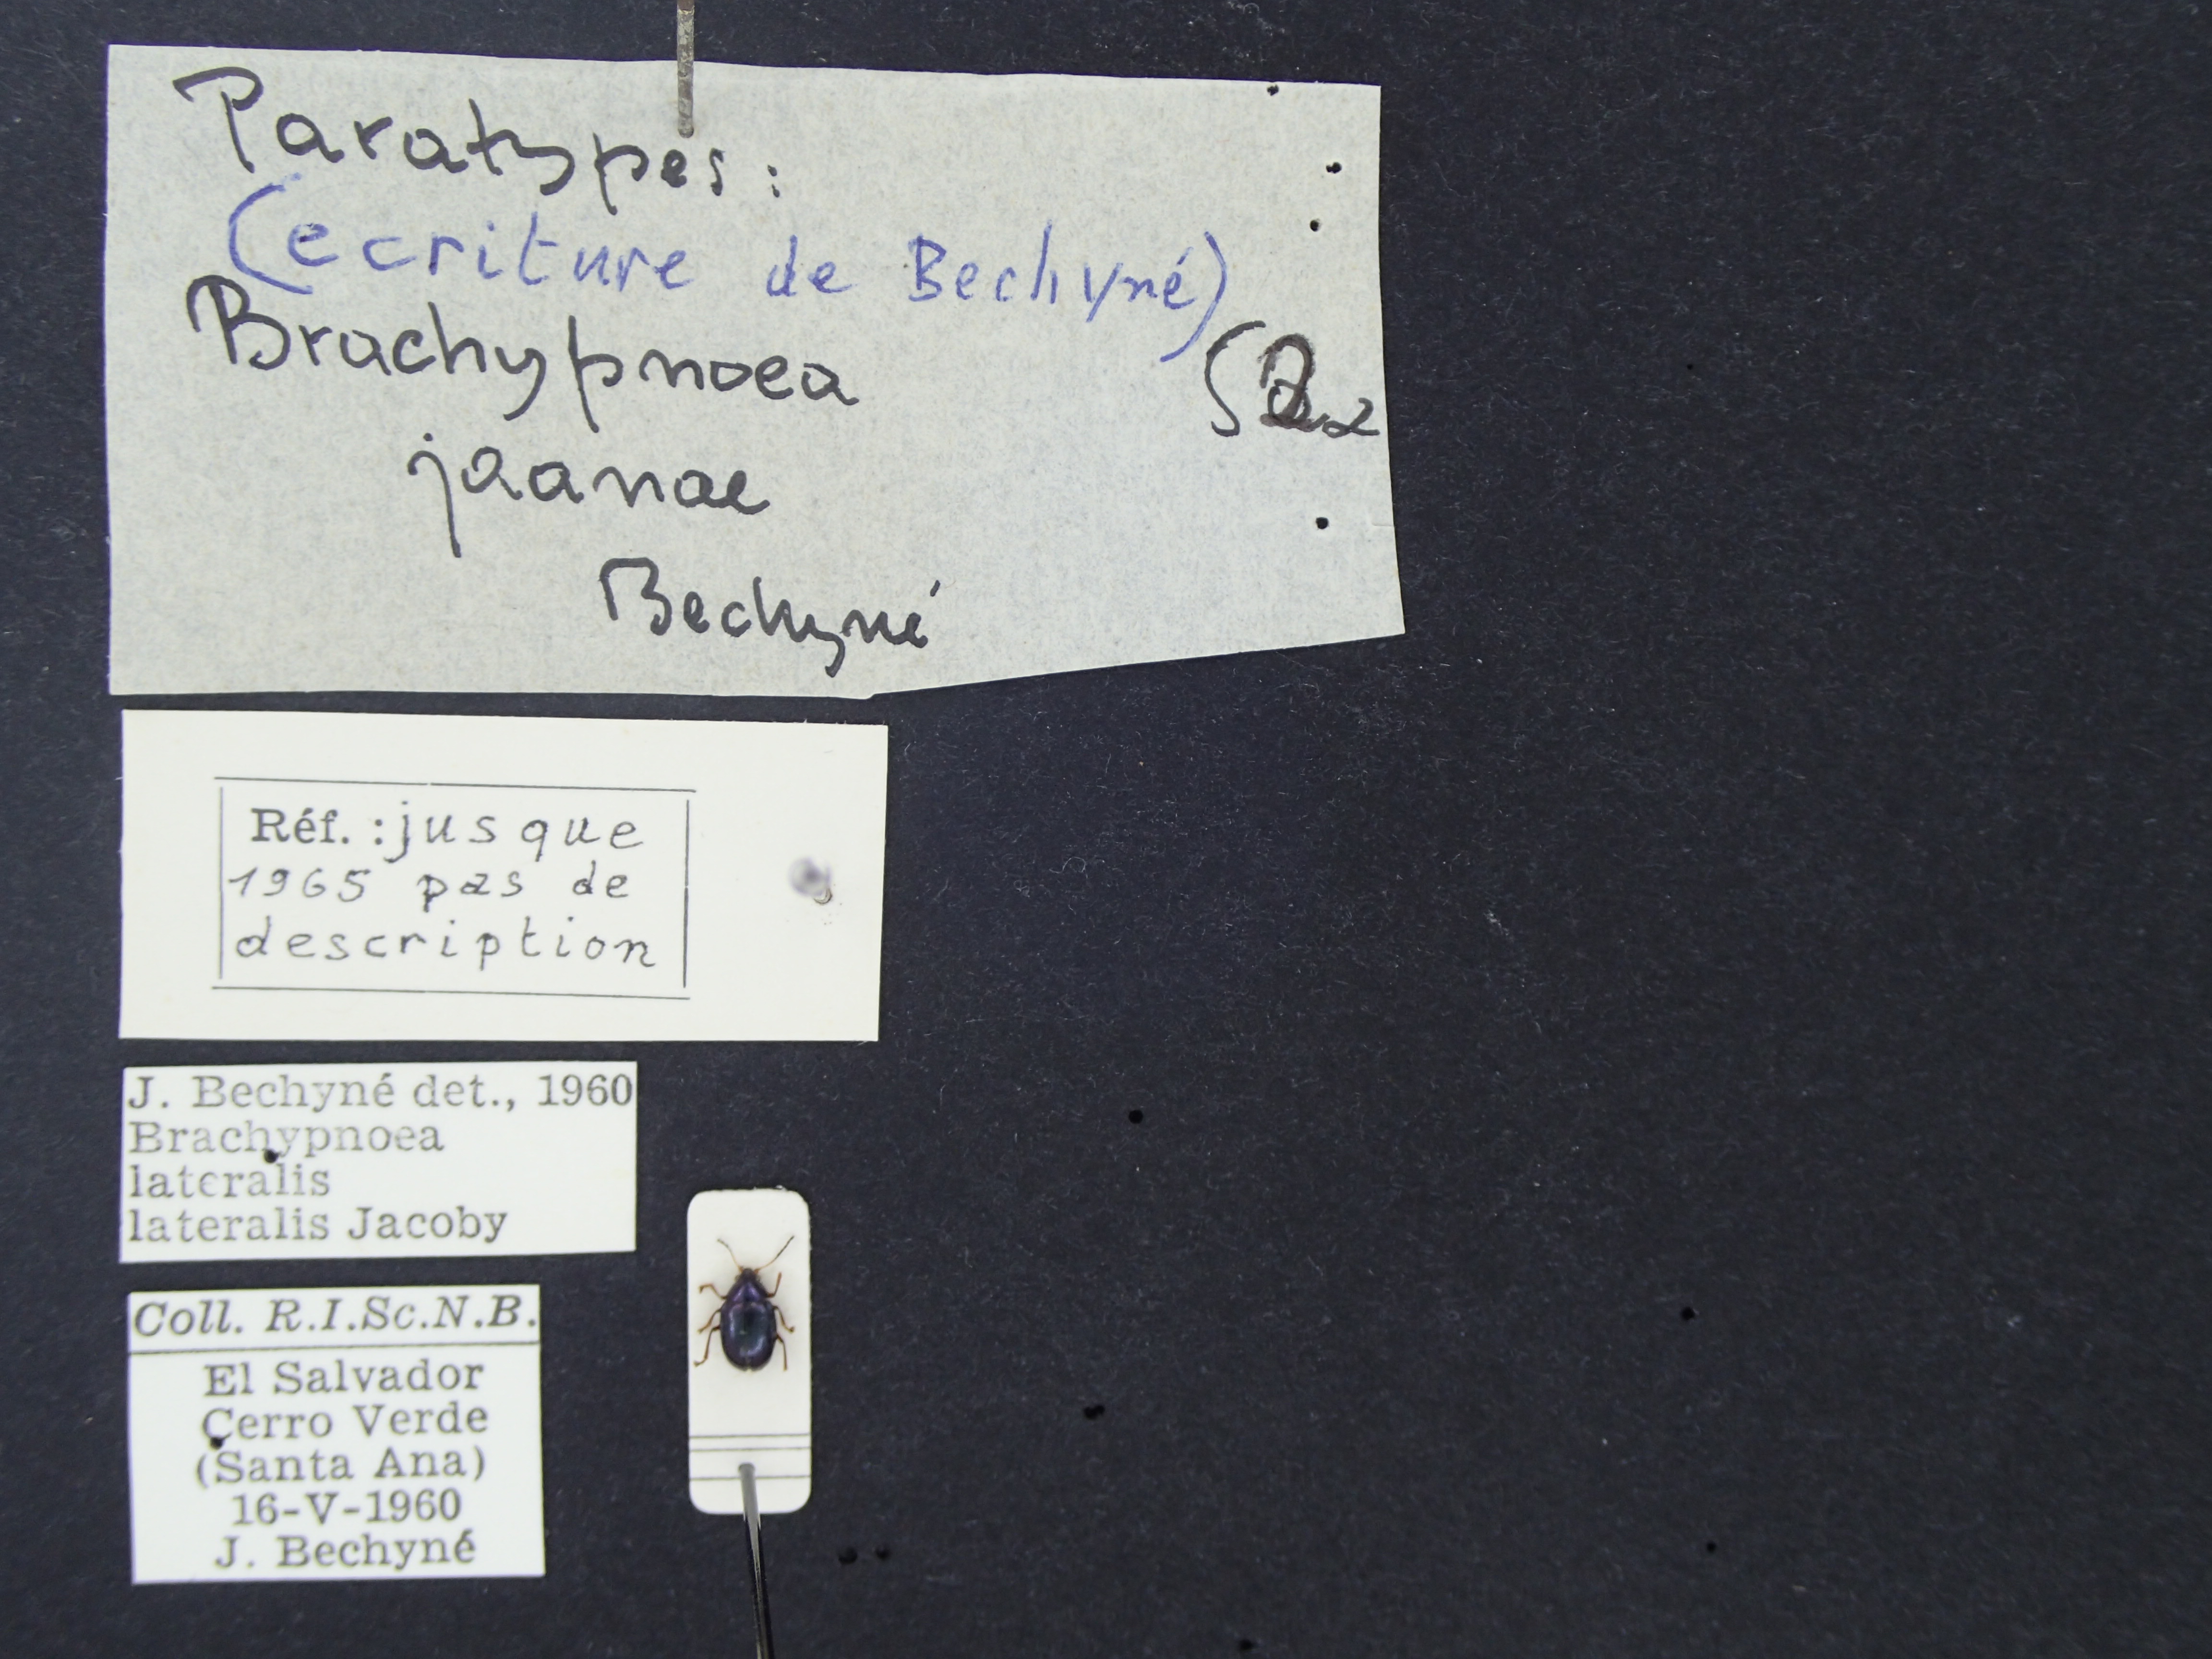 Paratypes:
(ecriture de Bechyné)
Brachypnoea
jaanae
Bechyné
Réf. : jusque
1965 pas de
description
J. Bechyné det., 1960
Brachypnoea
lateralis
lateralis Jacoby
Coll. R.I.Sc.N.B.
El Salvador
Cerro Verde
(Santa Ana)
16-V-1960
J. Bechyné